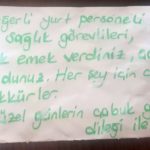 ğerli yurt personeli
Sağlık görevlileri,
k emek verdiniz,
dunuz. Her şey için
kkürler.
üzel günlerin çabuk
dileği ile